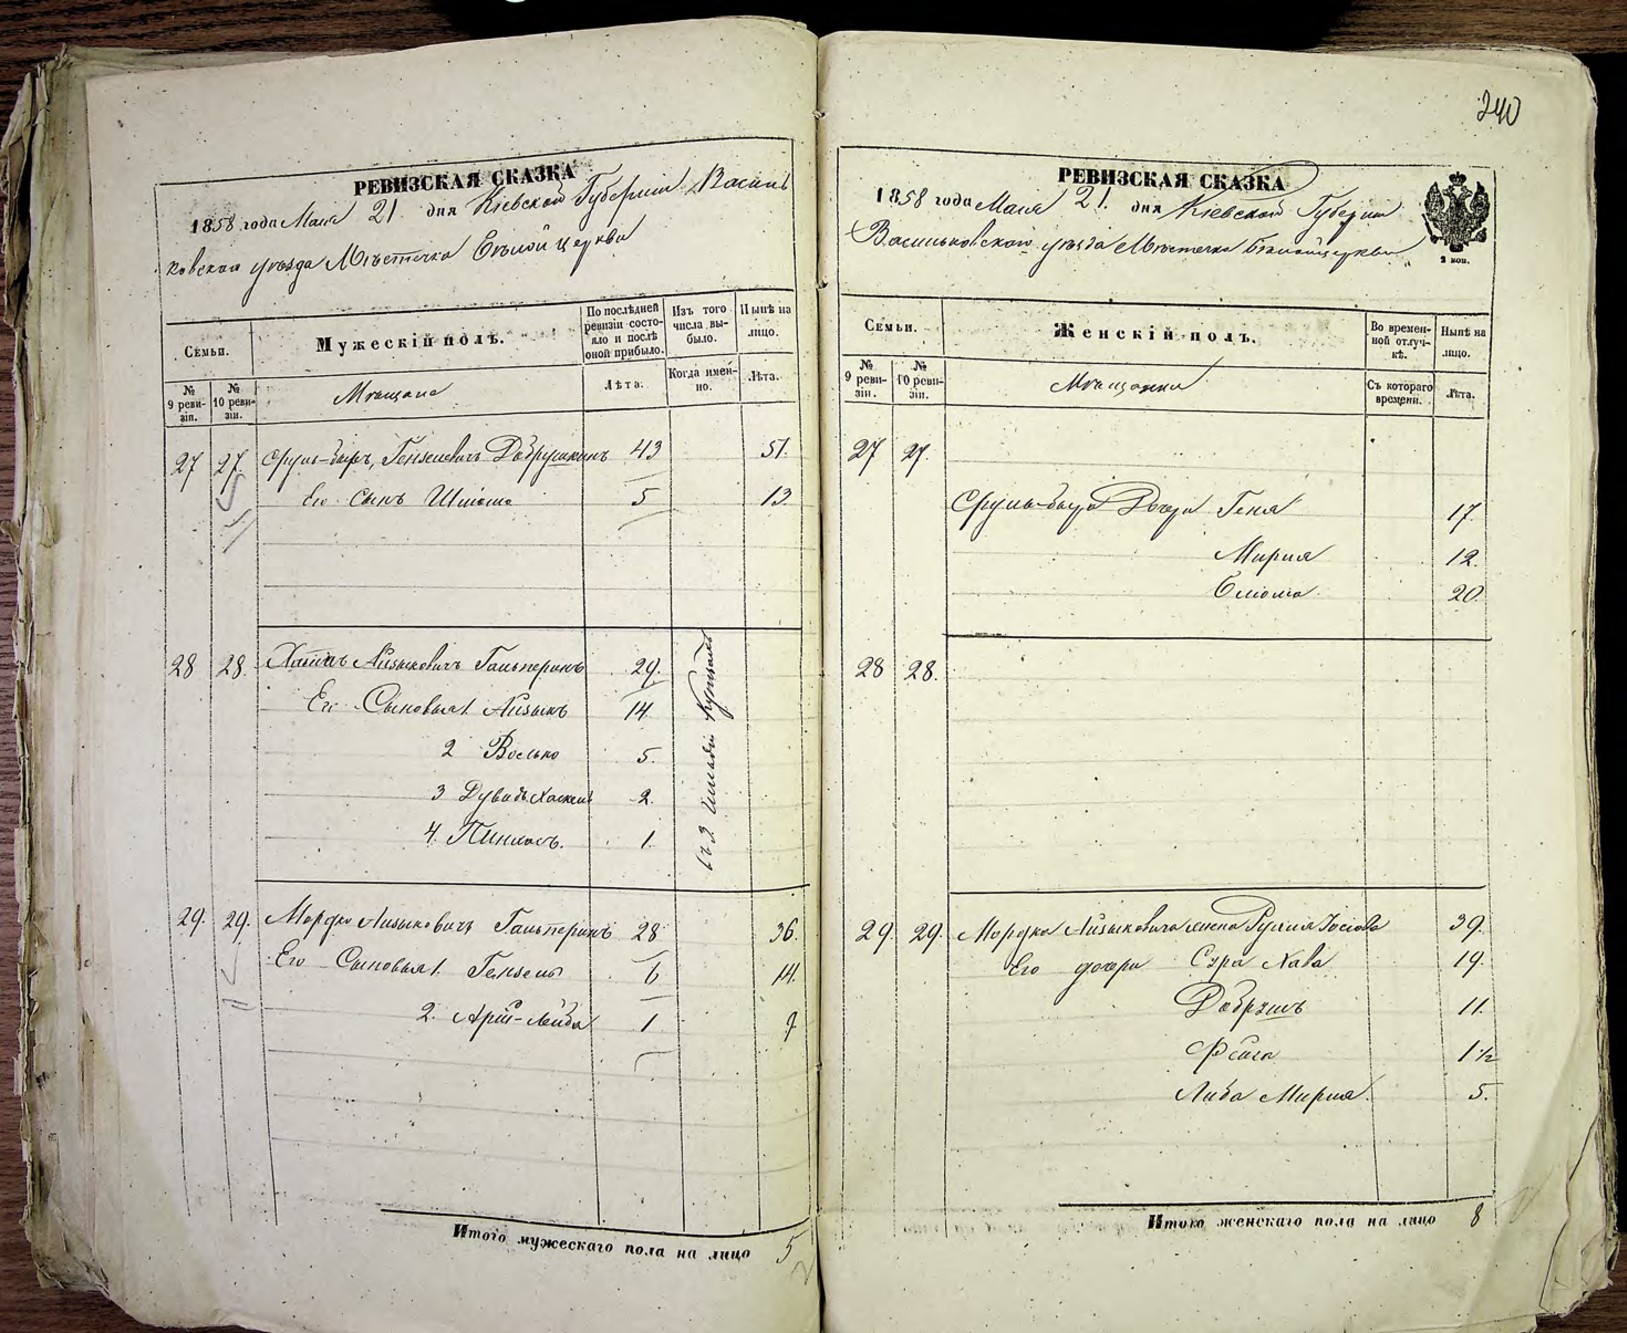 240
РЕВИЗСКАЯ СКАЗКА
1858 года Мая 21 дня Кіевской Губерніи Василь
ковскаго уѣзда Мѣстечка Бѣлой церкви
Семьи.
Мужескій полъ.
По послѣдней ревизіи состояло и послѣ оной прибыло.
Изъ того числа выбыло.
Нынѣ на лицо.
№ 9 ревизіи.
№ 10 ревизіи.
Мѣщане
Лѣта.
Когда именно.
Лѣта.
27 27. Сруль-Беръ, Гензелевичъ Добрушкинъ 43 51.
Его сынъ Шліома 5 13.
28 28. Хаимъ Айзыковичъ Гальперинъ 29.
Его Сыновья 1. Айзыкъ 14.
2 Волько 5.
3 Дувидъ Хаскель 2.
4. Пинхасъ. 1.
29. 29. Мордко Айзыковичъ Гальперинъ 28 36.
Его Сыновья 1. Гензель 6 14.
2. Арій-Лейба 1 9
Итого мужескаго пола на лицо 5
РЕВИЗСКАЯ СКАЗКА
1858 года Мая 21. дня Кіевской Губерніи
Васильковскаго уѣзда Мѣстечка Бѣлойцеркви
2 коп.
Семьи.
Женскій полъ.
Во временной отлучкѣ.
Нынѣ на лицо.
№ 9 ревизіи.
№ 10 ревизіи.
Мѣщанки
Съ котораго времени.
Лѣта.
27 27.
Сруль-Бера Дочери Геня 17.
Мирия 12.
20.
28 28.
29 29. Мордка Айзыковича жена Рухля Іосіова 39.
Его дочери Сура Хава 19.
Добрушъ 11.
Фейга 1 ½
Либа Мирия. 5.
Итого женскаго пола на лицо 8